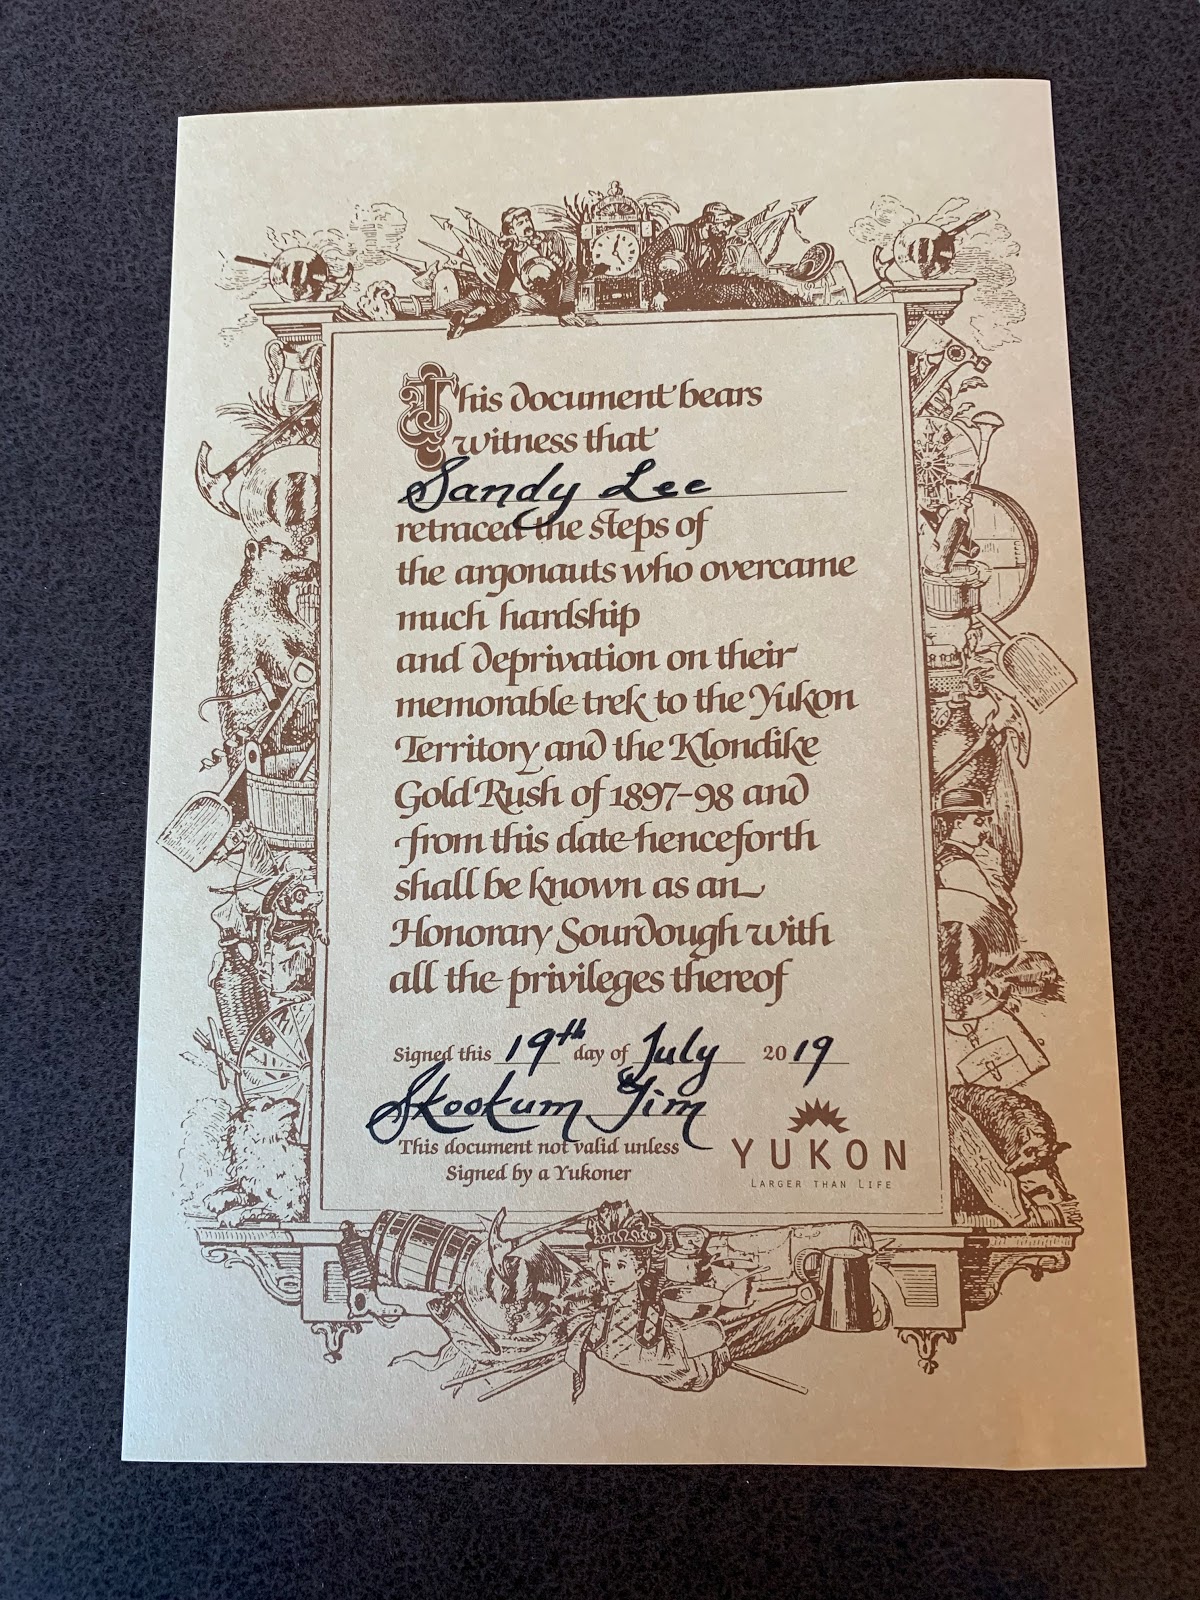 This document bears
witness that
Sandy Lee
retraced the steps of
the argonauts who overcame
much hardship
and deprivation on their
memorable trek to the Yukon
Territory and the Klondike
Gold Rush of 1897-98 and
from this date henceforth
shall be known as an
Honorary Sourdough with
all the privileges thereof
Signed this 19th day of July 2019
Skookum Jim
This document not valid unless
Signed by a Yukoner
YUKON
LARGER THAN LIFE